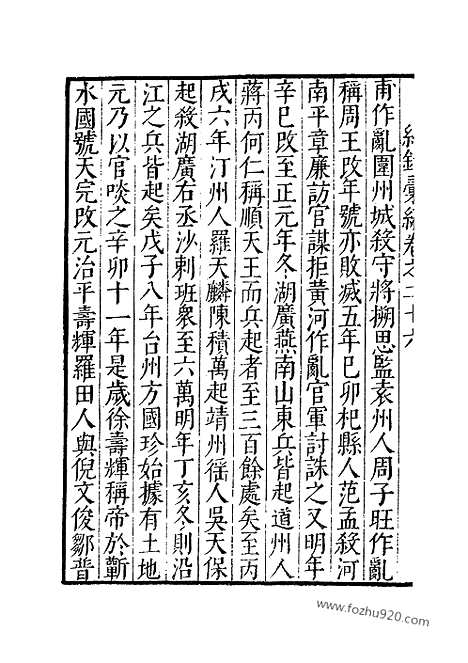 紀錄彙編卷之二十六
甫作亂圍州城殺守將搠思監袁州人周子旺作亂
稱周王改年號亦敗滅五年巳卯杞縣人范孟殺河
南平章廉訪官謀拒黃河作亂官軍討誅之又明年
辛巳改至正元年冬湖廣燕南山東兵皆起道州人
蔣丙何仁稱順天王而兵起者至三百餘處矣至丙
戌六年汀州人羅天麟陳積萬起靖州徭人吳天保
起殺湖廣右丞沙剌班衆至六萬明年丁亥冬則沿
江之兵皆起矣戊子八年台州方國珍始據有土地
元乃以官啖之辛卯十一年是歲徐壽輝稱帝於蘄
水國號天完改元治平壽輝羅田人與倪文俊鄒普
www.fozhu920.com